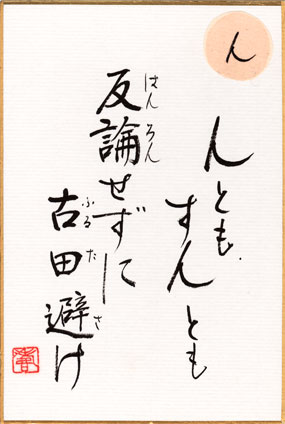 ん
んとも
すんとも
反論せずに
はんろん
古田避け
ふるたさ